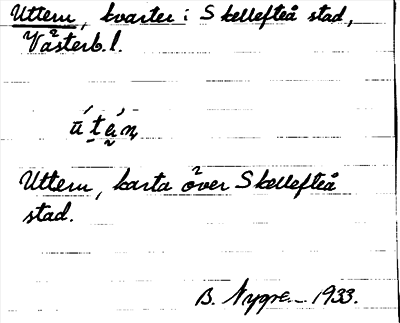 Uttern, kvarter i Skellefteå stad,
Västerb. l.
Uttern, karta över Skellefteå
stad.
B. Nygre 1933.